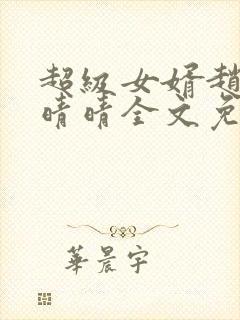 超級女婿趙
晴晴全文免
華晨宇